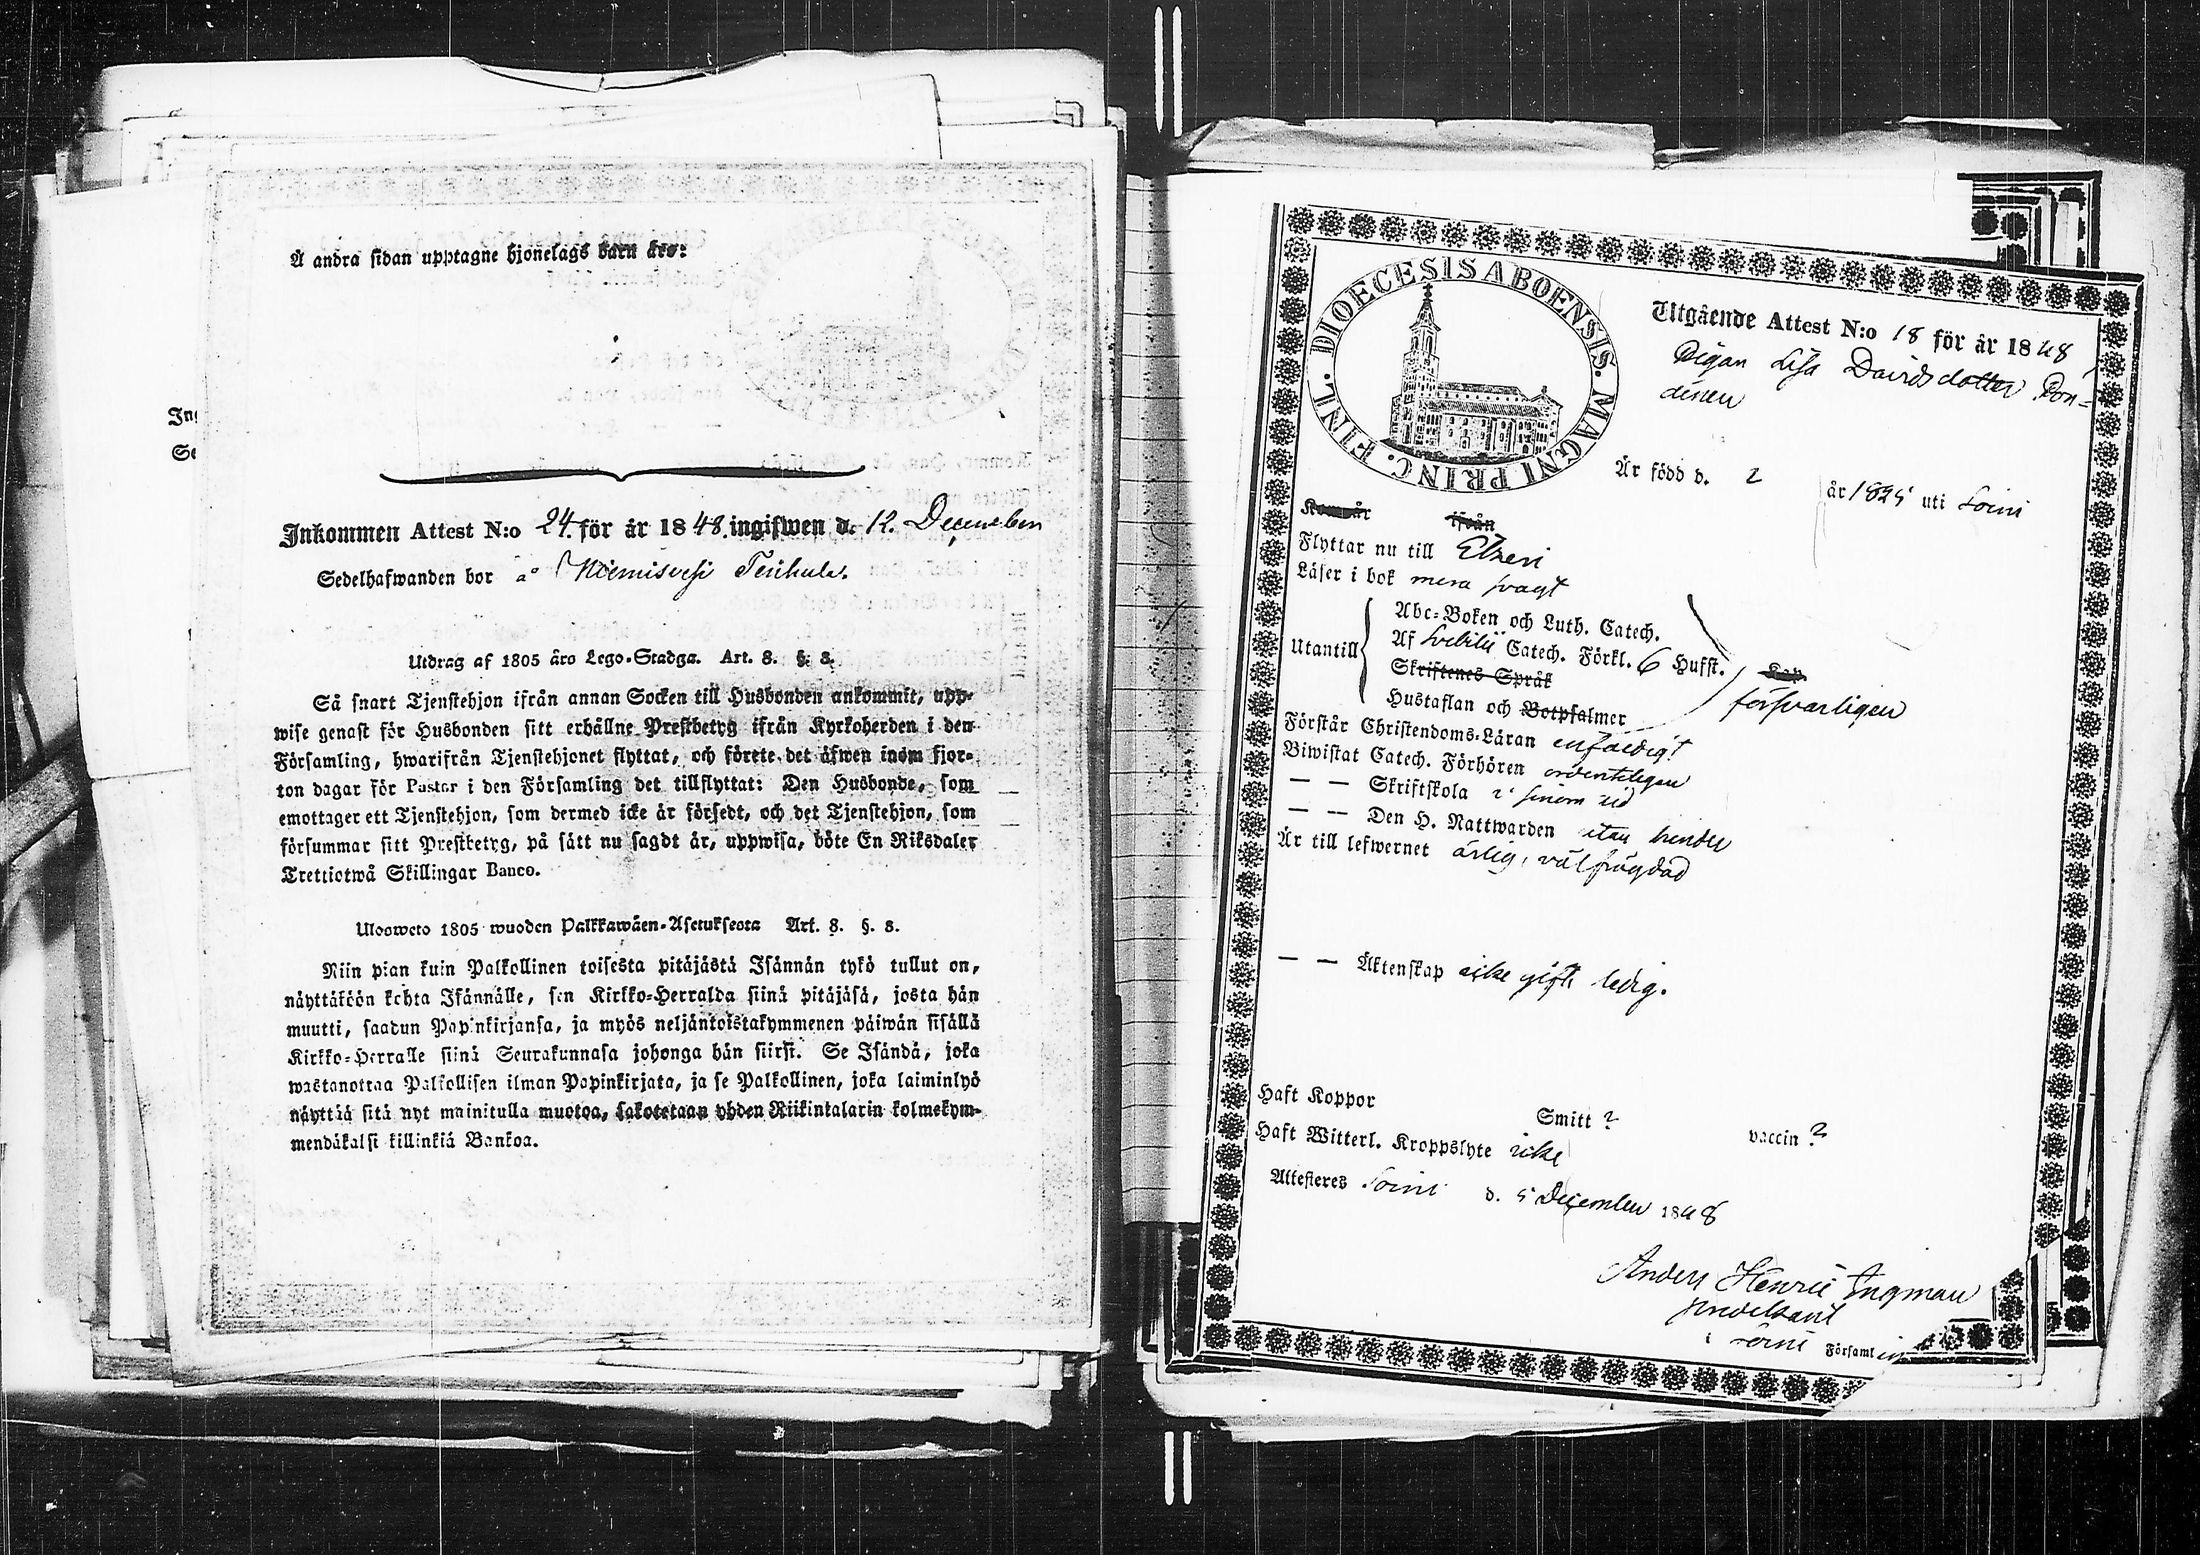 Å andra sidan upptagne hjonelags barn äro:
Inkommen Attest N:o 24. för år 1848. ingifwen d. 12. December
Sedelhafwanden bor å Niemisvesi
Utdrag af 1805 års Lego-Stadga. Art. 8. §. 8.
Så snart Tjenstehjon ifrån annan Socken till Husbonden ankommit, upp-
wise genast för Husbonden sitt erhållne Prestbetyg ifrån Kyrkoherden i den
Församling, hwarifrån Tjenstehjonet flyttat, och förete det äfwen inom fjor-
ton dagar för Pastor i den Församling det tillflyttat: Den Husbonde, som
emottager ett Tjenstehjon, som dermed icke är försedt, och det Tjenstehjon, som
försummar sitt Prestbetyg, på sätt nu sagdt är, uppwisa, böte En Riksdaler
Trettiotwå Skillingar Banco.
Ulosweto 1805 wuoden Palkkawäen-Asetuksesta Art. 8. §. 8.
Niin pian kuin Palkollinen toisesta pitäjästä Isännän tykö tullut on,
näyttäköön kohta Isännälle, sen Kirkko-Herralda siinä pitäjäsä, josta hän
muutti, saadun Papinkirjansa, ja myös neljäntoistakymmenen päiwän sisällä
Kirkko-Herralle siinä Seurakunnasa johonga hän siirsi. Se Isändä, joka
wastanottaa Palkollisen ilman Papinkirjata, ja se Palkollinen, joka laiminlyö
näyttää sitä nyt mainitulla muotoa, sakotetaan yhden Riikintalarin kolmekym-
mendäkaksi killinkiä Bankoa.
FINL. DIOECESIS ABOENSIS. MAGNI PRINC.
Utgående Attest N:o 18 för år 1848
Pigan Lisa Davidsdotter Pön=
dinen
Är född d. 2 år 1825 uti Soini
Kom år ifrån
Flyttar nu till Etseri
Läser i bok mera svagt
Utantill
Abc-Boken och Luth. Catech.
Af Svebilii Catech. Förkl. 6 Hufst. Kap.
Skriftenes Språk
Hustaflan och Botpsalmer
försvarligen
Förstår Christendoms-Läran enfaldigt
Biwistat Catech. Förhören ordenteligen
— — Skriftskola i sinom tid
— — Den H. Nattwarden utan hinder
Är till lefwernet ärlig, välfrägdad
— — Äktenskap icke gift ledig.
Haft Koppor Smitt ? vaccin ?
Haft Witterl. Kroppslyte icke
Attesteres Soini d. 5 December 1848
Anders Henric Ingman
predikant
i Soini Församling